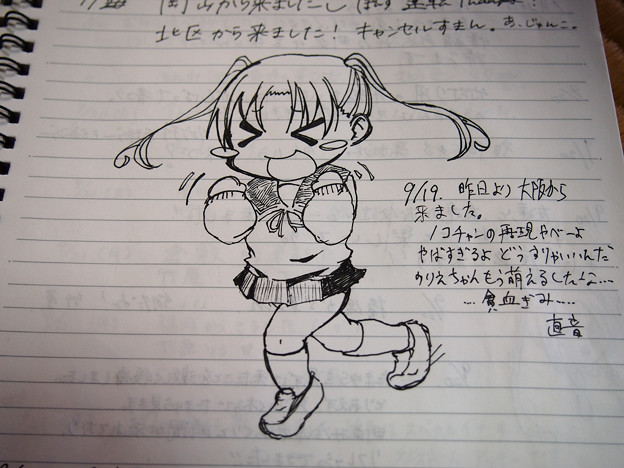 から来ましたこし
北区から来ました! キャンセルすまん。あ、じゃんこ。
9/19. 昨日より大阪から
来ました。
ノコチャンの再現やべーよ
やばすぎるよ どうすりゃいいんだ
のりえちゃんもう萌えるしたよ……
……貧血ぎみ……
直音